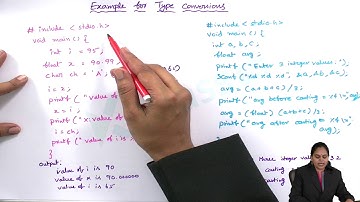 Example for Type Conversions
# include < stdio.h>
void main() {
int i = 95;
float x = 90.99,
char ch = 'A';
i = x;
printf ("value of
x = i;
printf ("value of
i = ch;
printf ("value of i is
}
output:
value of i is 90
value of x is 90.000000
value of i is 65
#include <stdio.h>
void main() {
int a, b, c;
float avg;
printf ("Enter 3 integer values:");
scanf ("%d %d %d", &a, &b, &c);
avg = (a+b+c)/3;
printf ("avg before casting = %f\n", avg);
avg = (float)(a+b+c)/3;
printf ("avg after casting = %f\n", avg);
}
three integer values: 3 2
casting
casting